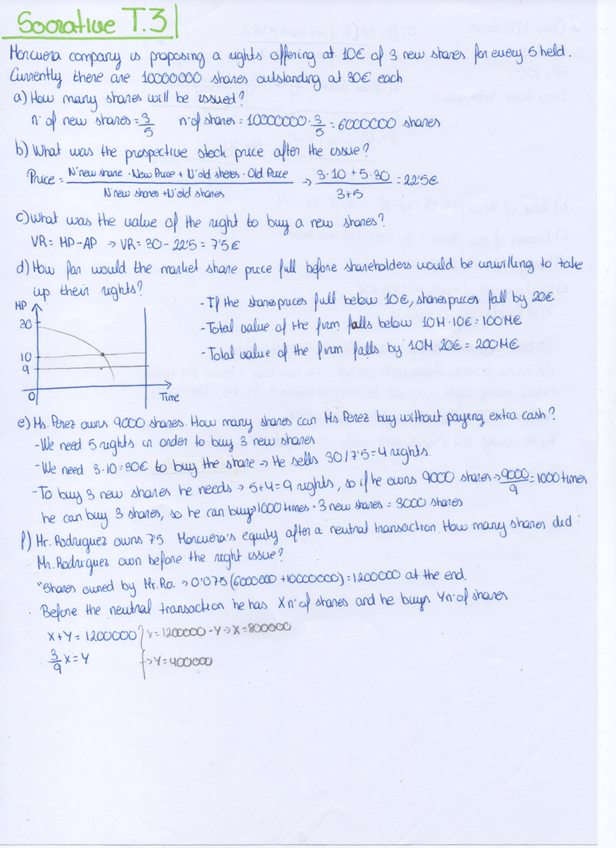 Socrative T.3
Moncuera company is proposing a rights offering at 10€ of 3 new shares for every 5 held.
Currently there are 10000000 shares outstanding at 30€ each
a) How many shares will be issued?
nº of new shares = 3/5 nº of shares = 10000000 · 3/5 = 6000000 shares
b) What was the prospective stock price after the issue?
Price = (Nº new share · New Price + Nº old shares · Old Price) / (N new shares + Nº old shares) → (3·10 + 5·30) / (3+5) = 22'5€
c) What was the value of the right to buy a new shares?
VR = MP - AP → VR = 30 - 22'5 = 7'5€
d) How far would the market share price full before shareholders would be unwilling to take
up their rights?
MP
30
10
9
0
Time
- If the shares prices full below 10€, shares prices fall by 20€
- Total value of the firm falls below 10M·10€ = 100M€
- Total value of the firm falls by 10M·20€ = 200M€
e) Ms. Perez owns 9000 shares. How many shares can Ms Perez buy without paying extra cash?
- We need 5 rights in order to buy 3 new shares
- We need 3·10 = 30€ to buy the share → He sells 30/7'5 = 4 rights.
- To buy 3 new shares he needs → 5+4 = 9 rights, so if he owns 9000 shares → 9000/9 = 1000 times
he can buy 3 shares, so he can buy → 1000 times · 3 new shares = 3000 shares
f) Mr. Rodriguez owns 7'5 Moncuera's equity after a neutral transaction. How many shares did
Mr. Rodriguez own before the right issue?
"Shares owned by Mr. Ro. → 0'075 (6000000 + 10000000) = 1200000 at the end.
. Before the neutral transaction he has X nº of shares and he buys Y nº of shares
X + Y = 1200000 } X = 1200000 - Y → X = 800000
3/9 X = Y → Y = 400000